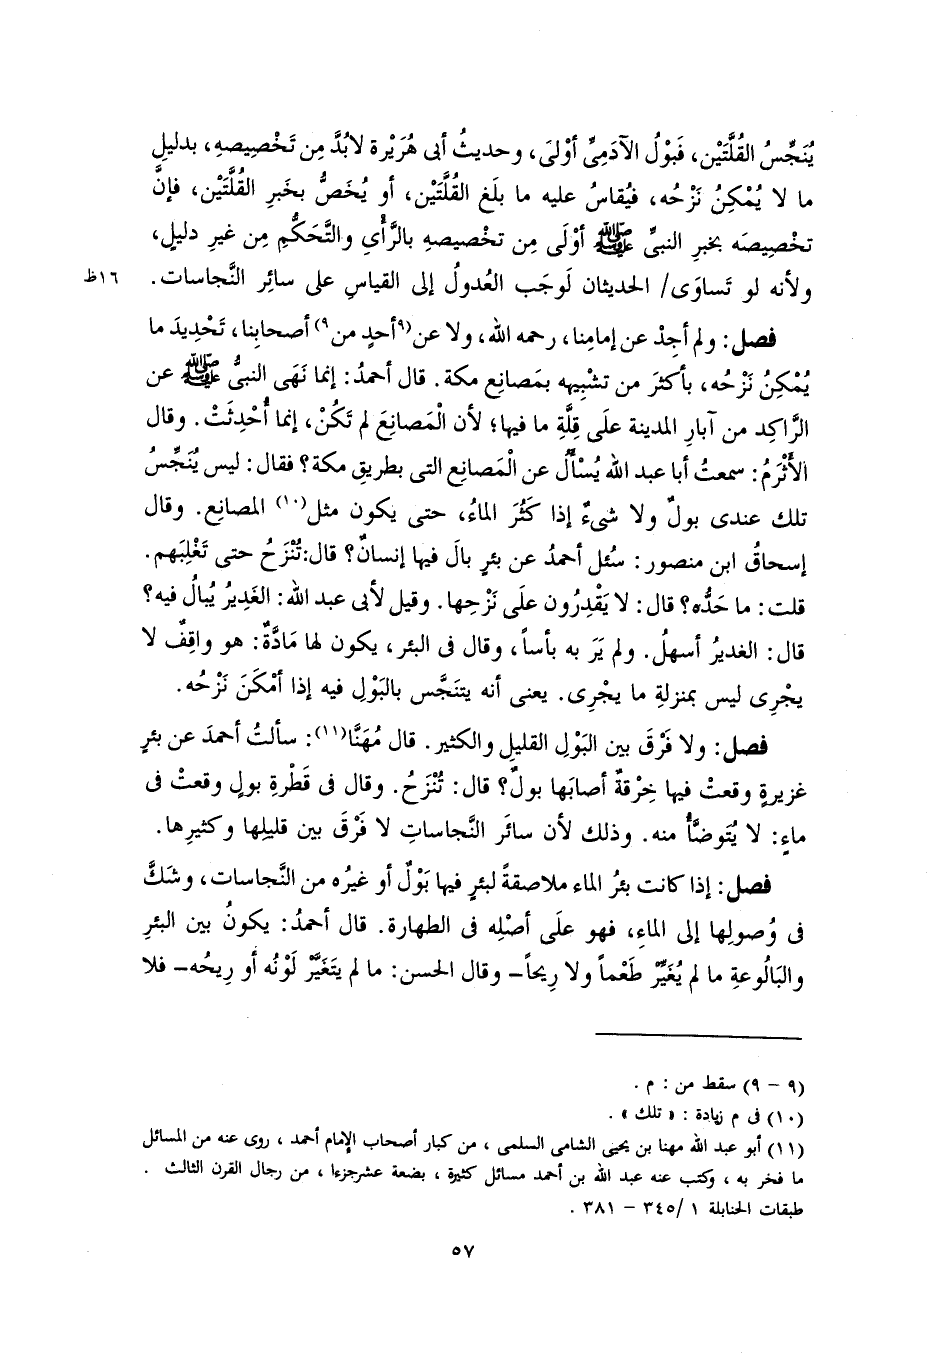 يُنَجِّسُ القُلَّتَيْن، فَبَوْلُ الآدَمِىِّ أوْلىَ، وحديثُ أبى هُرَيْرة لابُدَّ مِن تَخْصِيصِه، بدليلِ
ما لا يُمْكِنُ نَزْحُه، فيُقاسُ عليه ما بلَغ القُلَّتَيْن، أو يُخَصُّ بخَبَرِ القُلَّتَيْن، فإنَّ
تخْصِيصَه بخَبرِ النبىِّ ﷺ أوْلَى مِن تخصيصِهِ بالرَّأْىِ والتَّحَكُّمِ مِن غيرِ دليلٍ،
ولأنه لو تَساوَى/ الحديثان لَوجَب العُدولُ إلى القياسِ على سائِر النَّجاسات. ١٦ظ
فصل: ولم أجِدْ عن إمامِنا، رحمه الله، ولا عن (٩أحدٍ من ٩) أصحابِنا، تَحْدِيدَ ما
يُمْكِنُ نَزْحُه، بأكثرَ من تشْبِيهِه بمَصانِع مكة. قال أحمدُ: إنما نَهَى النبىُّ ﷺ عن
الرَّاكِد من آبارِ المدينة علَى قِلَّةِ ما فيها؛ لأن الْمَصانِعَ لم تَكُنْ، إنما أُحْدِثَتْ. وقال
الأَثْرَمُ: سمعتُ أبا عبد الله يُسْأَلُ عن الْمَصانِع التى بطريقِ مكة؟ فقال: ليس يُنَجِّسُ
تلك عندى بولٌ ولا شىءٌ إذا كَثُرَ الماءُ، حتى يكون مثل(١٠) المصانِع. وقال
إسحاقُ ابن منصور: سُئل أحمدُ عن بئرٍ بالَ فيها إنسانٌ؟ قال: تُنْزَحُ حتى تَغْلِبَهم.
قلت: ما حَدُّه؟ قال: لا يَقْدِرُون علَى نَزْحِها. وقيل لأبى عبد الله: الغَدِيرُ يُبالُ فيه؟
قال: الغديرُ أسهلُ. ولم يَرَ به بأساً، وقال فى البئر، يكون لها مَادَّةٌ: هو واقِفٌ لا
يجْرِى ليس بمنزلةِ ما يجْرِى. يعنى أنه يتنَجَّس بالبَوْلِ فيه إذا أمْكَنَ نَزْحُه.
فصل: ولا فَرْقَ بين البَوْلِ القليل والكثير. قال مُهَنَّا(١١): سألتُ أحمدَ عن بئرٍ
غزيرةٍ وقعتْ فيها خِرْقةٌ أصابَها بولٌ؟ قال: تُنْزَحُ. وقال فى قَطْرةِ بولٍ وقعتْ فى
ماءٍ: لا يُتَوضَّأُ منه. وذلك لأن سائَر النَّجاساتِ لا فَرْقَ بين قليلِها وكثيرِها.
فصل: إذا كانت بئرُ الماء ملاصقةً لبئرٍ فيها بَوْلٌ أو غيرُه من النَّجاسات، وشَكَّ
فى وُصولِها إلى الماءِ، فهو علَى أصْلِه فى الطهارة. قال أحمدُ: يكونُ بين البئرِ
والبَالُوعةِ ما لم يُغَيِّرْ طَعْماً ولا رِيحاً– وقال الحسن: ما لم يَتَغَيَّرْ لَوْنُه أو رِيحُه– فلا
(٩ – ٩) سقط من : م .
(١٠) فى م زيادة : « تلك » .
(١١) أبو عبد الله مهنا بن يحيى الشامى السلمى ، من كبار أصحاب الإمام أحمد ، روى عنه من المسائل
ما فخر به ، وكتب عنه عبد الله بن أحمد مسائل كثيرة ، بضعة عشرجزءا ، من رجال القرن الثالث .
طبقات الحنابلة ١ /٣٤٥ – ٣٨١ .
٥٧